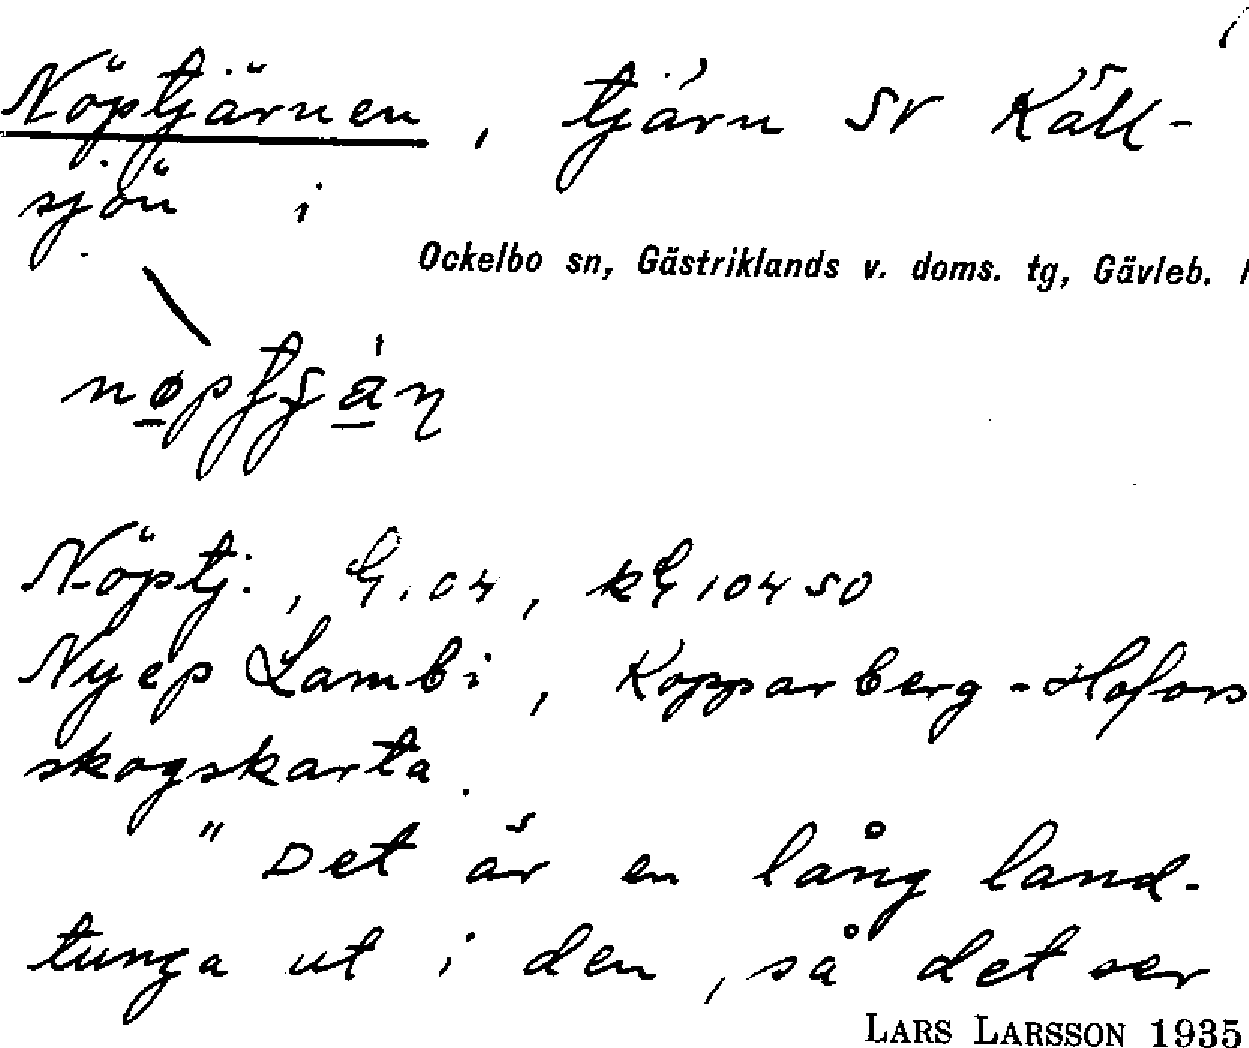 Nöptjärnen, tjärn SV Käll-
sjön i
Ockelbo sn, Gästriklands v. doms. tg, Gävleb.
Nöptj., G. 04, kG 10450
Nyep Lambi, Kopparberg-Hofors
skogskarta.
"Det är en lång land-
tunga ut i den, så det ser
LARS LARSSON 1935